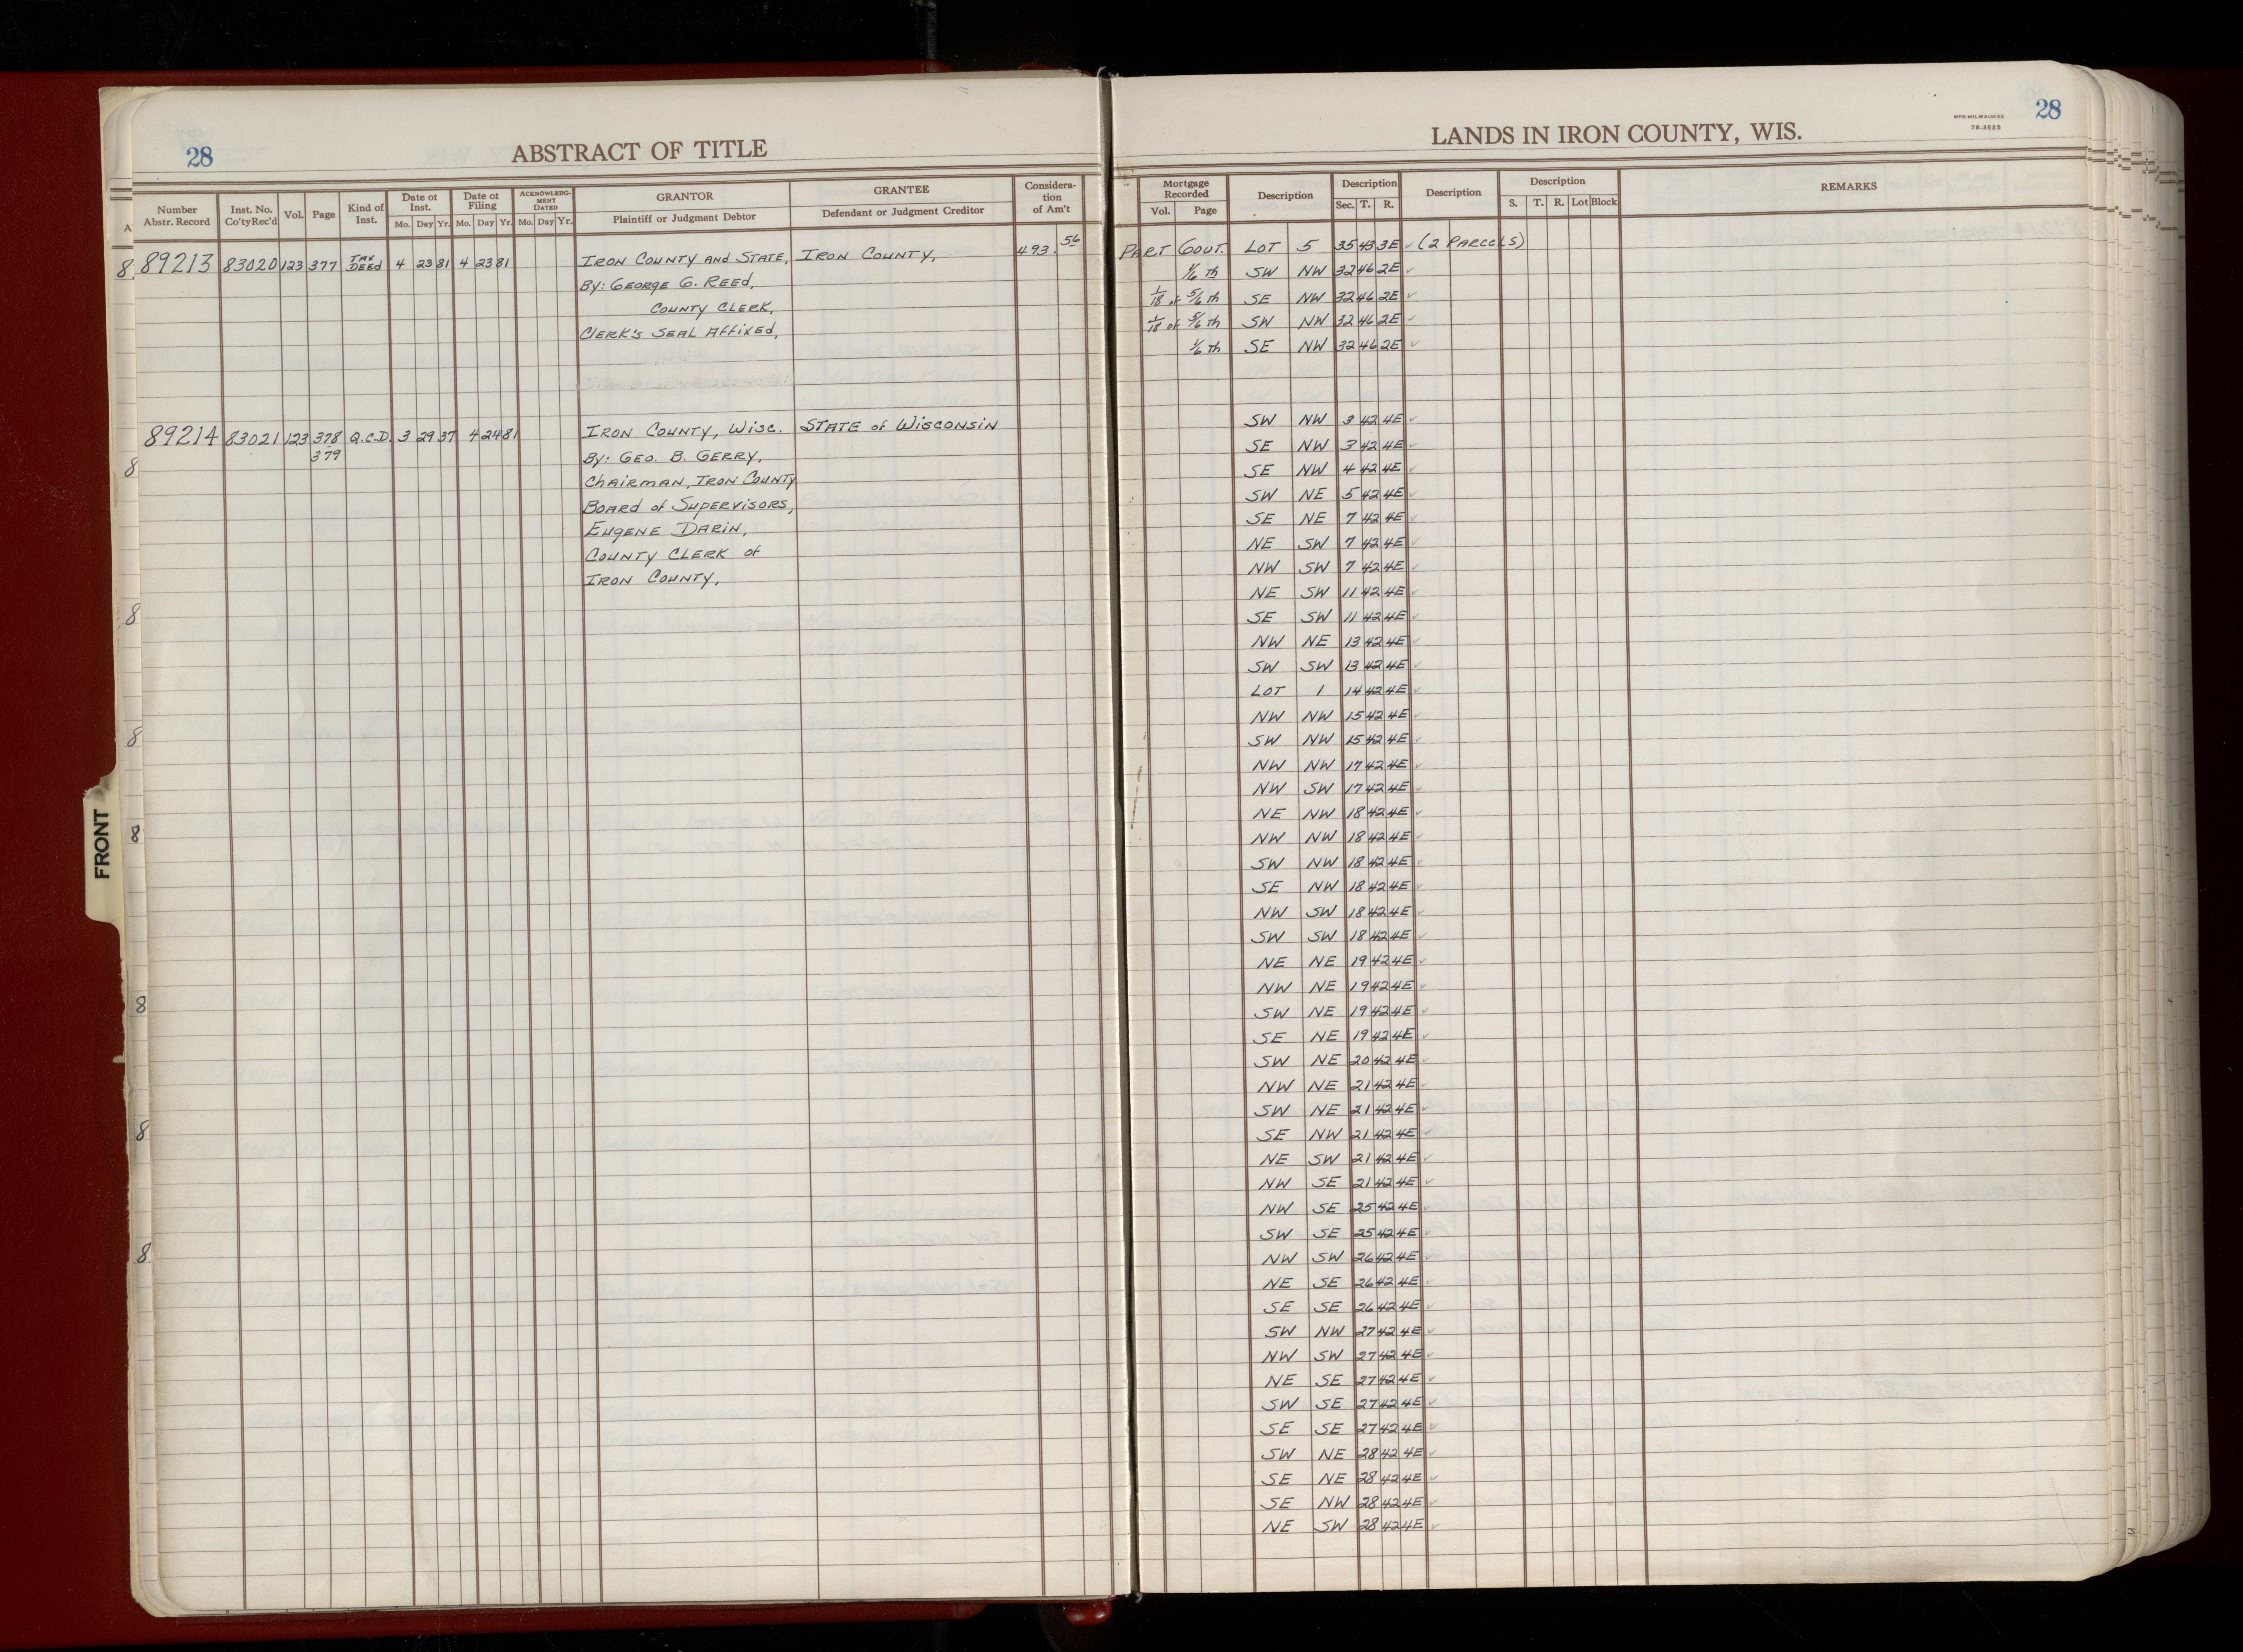 28
ABSTRACT OF TITLE
Number Abstr. Record
Inst. No. Co'ty Rec'd
Vol.
Page
Kind of Inst.
Date of Inst.
Mo. Day Yr.
Date of Filing
Mo. Day Yr.
ACKNOWLEDG-MENT DATED
Mo. Day Yr.
GRANTOR
Plaintiff or Judgment Debtor
GRANTEE
Defendant or Judgment Creditor
Considera-tion of Am't
89213 83020 123 377 TAX DEED 4 23 81 4 23 81 IRON COUNTY AND STATE, IRON COUNTY, 493.56
BY: GEORGE G. REED,
COUNTY CLERK,
CLERK'S SEAL AFFIXED,
89214 83021 123 378 Q.C.D. 3 29 37 4 24 81 IRON COUNTY, WISC. STATE of WISCONSIN
379 BY: GEO. B. GERRY,
CHAIRMAN, IRON COUNTY
BOARD of SUPERVISORS,
EUGENE DARIN,
COUNTY CLERK of
IRON COUNTY,
FRONT
LANDS IN IRON COUNTY, WIS.
MPB-MILWAUKEE
78-3525
28
Mortgage Recorded
Vol. Page
Description
Description
Sec. T. R.
Description
Description
S. T. R. Lot Block
REMARKS
PART GOUT. LOT 5 35 43 3E ✓ (2 PARCELS)
1/6 th SW NW 32 46 2E ✓
1/18 of 5/6 th SE NW 32 46 2E ✓
1/18 of 5/6 th SW NW 32 46 2E ✓
1/6 th SE NW 32 46 2E ✓
SW NW 3 42 4E ✓
SE NW 3 42 4E ✓
SE NW 4 42 4E ✓
SW NE 5 42 4E ✓
SE NE 7 42 4E ✓
NE SW 7 42 4E ✓
NW SW 7 42 4E ✓
NE SW 11 42 4E ✓
SE SW 11 42 4E ✓
NW NE 13 42 4E ✓
SW SW 13 42 4E ✓
LOT 1 14 42 4E ✓
NW NW 15 42 4E ✓
SW NW 15 42 4E ✓
NW NW 17 42 4E ✓
NW SW 17 42 4E ✓
NE NW 18 42 4E ✓
NW NW 18 42 4E ✓
SW NW 18 42 4E ✓
SE NW 18 42 4E ✓
NW SW 18 42 4E ✓
SW SW 18 42 4E ✓
NE NE 19 42 4E ✓
NW NE 19 42 4E ✓
SW NE 19 42 4E ✓
SE NE 19 42 4E ✓
SW NE 20 42 4E ✓
NW NE 21 42 4E ✓
SW NE 21 42 4E ✓
SE NW 21 42 4E ✓
NE SW 21 42 4E ✓
NW SE 21 42 4E ✓
NW SE 25 42 4E ✓
SW SE 25 42 4E ✓
NW SW 26 42 4E ✓
NE SE 26 42 4E ✓
SE SE 26 42 4E ✓
SW NW 27 42 4E ✓
NW SW 27 42 4E ✓
NE SE 27 42 4E ✓
SW SE 27 42 4E ✓
SE SE 27 42 4E ✓
SW NE 28 42 4E ✓
SE NE 28 42 4E ✓
SE NW 28 42 4E ✓
NE SW 28 42 4E ✓